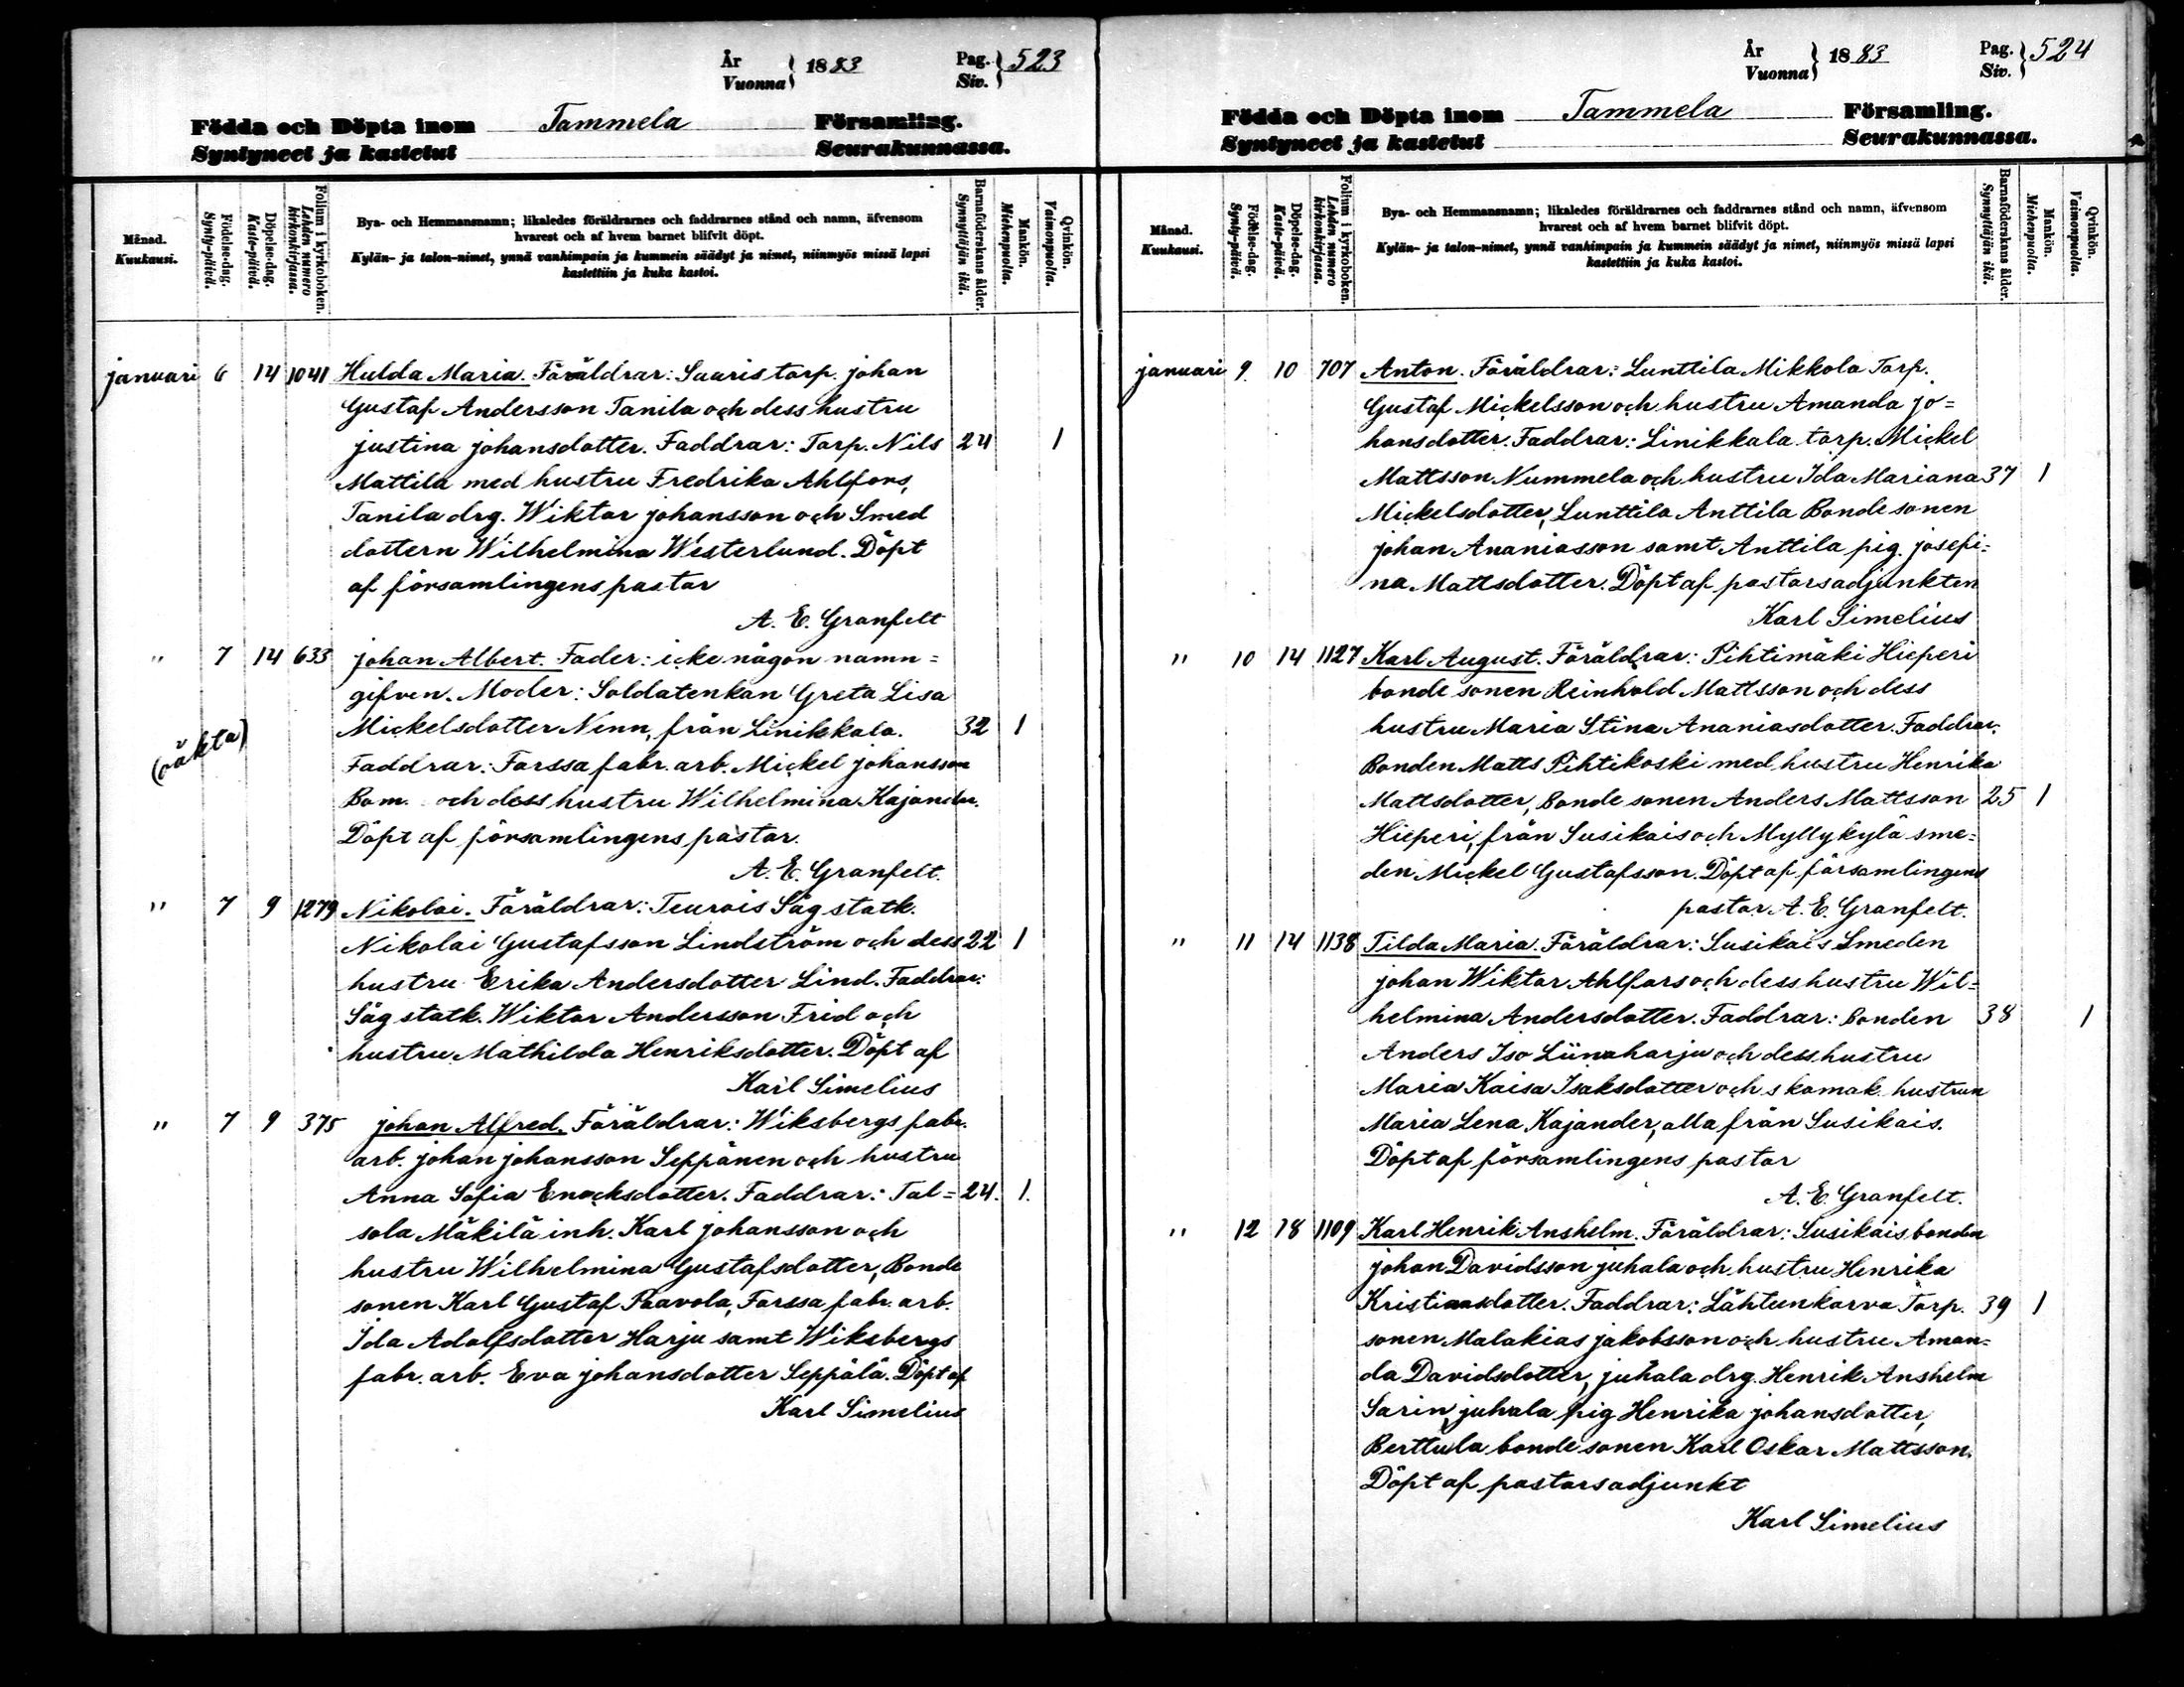 År
Vuonna } 1883
Pag.
Siv. } 523
Födda och Döpta inom Tammela Församling.
Syntyneet ja kastetut Seurakunnassa.
Månad.
Kuukausi.
Födelse-dag.
Synty-päivä.
Döpelse-dag.
Kaste-päivä.
Folium i kyrkoboken.
Lehden numero
kirkonkirjassa.
Bya- och Hemmansnamn; likaledes föräldrarnes och faddrarnes stånd och namn, äfvensom
hvarest och af hvem barnet blifvit döpt.
Kylän- ja talon-nimet, ynnä vanhimpain ja kummein säädyt ja nimet, niinmyös missä lapsi
kastettiin ja kuka kastoi.
Barnaföderskans ålder.
Synnyttäjän ikä.
Mankön.
Miehenpuolta.
Qvinkön.
Vaimonpuolta.
januari 6 14 1041 Hulda Maria. Föräldrar: Sauris torp. johan
Gustaf Andersson Tanila och dess hustru
justina johansdotter. Faddrar: Torp. Nils 24 1
Mattila med hustru Fredrika Ahlfors,
Tanila drg. Wiktor johansson och Smed
dottern Wilhelmina Westerlund. Döpt
af församlingens pastor
A. E. Granfelt
" 7 14 633 johan Albert. Fader: icke någon namn=
gifven. Moder: Soldatenkan Greta Lisa
Mickelsdotter Nenn, från Linikkala. 32 1
(oäkta)
Faddrar: Forssa fabr. arb. Mickel johansson
Bom. och dess hustru Wilhelmina Kajander.
Döpt af församlingens pastor.
A. E. Granfelt.
" 7 9 1279 Nikolai. Föräldrar: Teurois Såg statk.
Nikolai Gustafsson Lindström och dess 22 1
hustru Erika Andersdotter Lind. Faddrar:
Såg statk. Wiktor Andersson Frid och
hustru Mathilda Henriksdotter. Döpt af
Karl Simelius
" 7 9 375 johan Alfred. Föräldrar: Wiksbergs fabr.
arb. johan johansson Seppänen och hustru
Anna Sofia Enocksdotter. Faddrar: Tal= 24. 1.
sola Mäkilä inh. Karl johansson och
hustru Wilhelmina Gustafsdotter, Bonde
sonen Karl Gustaf Paavola, Forssa fabr. arb.
Ida Adolfsdotter Harju samt Wiksbergs
fabr. arb. Eva johansdotter Seppälä. Döpt af
Karl Simelius
År
Vuonna } 1883
Pag.
Siv. } 524
Födda och Döpta inom Tammela Församling.
Syntyneet ja kastetut Seurakunnassa.
Månad.
Kuukausi.
Födelse-dag.
Synty-päivä.
Döpelse-dag.
Kaste-päivä.
Folium i kyrkoboken.
Lehden numero
kirkonkirjassa.
Bya- och Hemmansnamn; likaledes föräldrarnes och faddrarnes stånd och namn, äfvensom
hvarest och af hvem barnet blifvit döpt.
Kylän- ja talon-nimet, ynnä vanhimpain ja kummein säädyt ja nimet, niinmyös missä lapsi
kastettiin ja kuka kastoi.
Barnaföderskans ålder.
Synnyttäjän ikä.
Mankön.
Miehenpuolta.
Qvinkön.
Vaimonpuolta.
januari 9. 10 707 Anton. Föräldrar: Lunttila Mikkola Torp.
Gustaf Mickelsson och hustru Amanda jo=
hansdotter. Faddrar: Linikkala torp. Mickel
Mattsson Nummela och hustru Ida Mariana 37 1
Mickelsdotter, Lunttila Anttila Bonde sonen
johan Ananiasson samt Anttila pig. josefi=
na Mattsdotter. Döpt af pastorsadjunkten
Karl Simelius
" 10 14 1127 Karl August. Föräldrar: Pihtimäki Hieperi
bonde sonen Reinhold Mattsson och dess
hustru Maria Stina Ananiasdotter. Faddrar:
Bonden Matts Pihtikoski med hustru Henrika
Mattsdotter, bonde sonen Anders Mattsson 25 1
Hieperi, från Susikais och Myllykylä sme=
den Mickel Gustafsson. Döpt af församlingens
pastor A. E. Granfelt.
" 11 14 1138 Tilda Maria. Föräldrar: Susikais Smeden
johan Wiktor Ahlfors och dess hustru Wil=
helmina Andersdotter. Faddrar: bonden 38 1
Anders Iso Liinaharju och dess hustru
Maria Kaisa Isaksdotter och skomak. hustrun
Maria Lena Kajander, alla från Susikais.
Döpt af församlingens pastor
A. E. Granfelt.
" 12 18 1109 Karl Henrik Anshelm. Föräldrar: Susikais bonden
johan Davidsson juhala och hustru Henrika
Kristiansdotter. Faddrar: Lähteenkorva Torp. 39 1
sonen Malakias jakobsson och hustru Aman=
da Davidsdotter, juhala drg. Henrik Anshelm
Sarin, juhala pig Henrika johansdotter,
Berttula bonde sonen Karl Oskar Mattsson.
Döpt af pastorsadjunkt
Karl Simelius